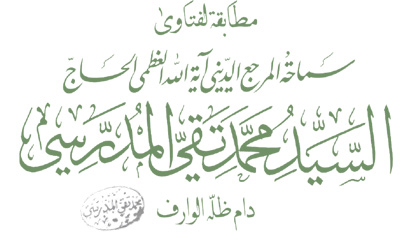 مطابقة لفتاوى
سماحة المرجع الديني آية الله العظمى الحاج
السَّيِّدِ مُحَمَّد تَقِي المُدَرِّسِي
دام ظلّه الوارف
محمد تقي المدرسي